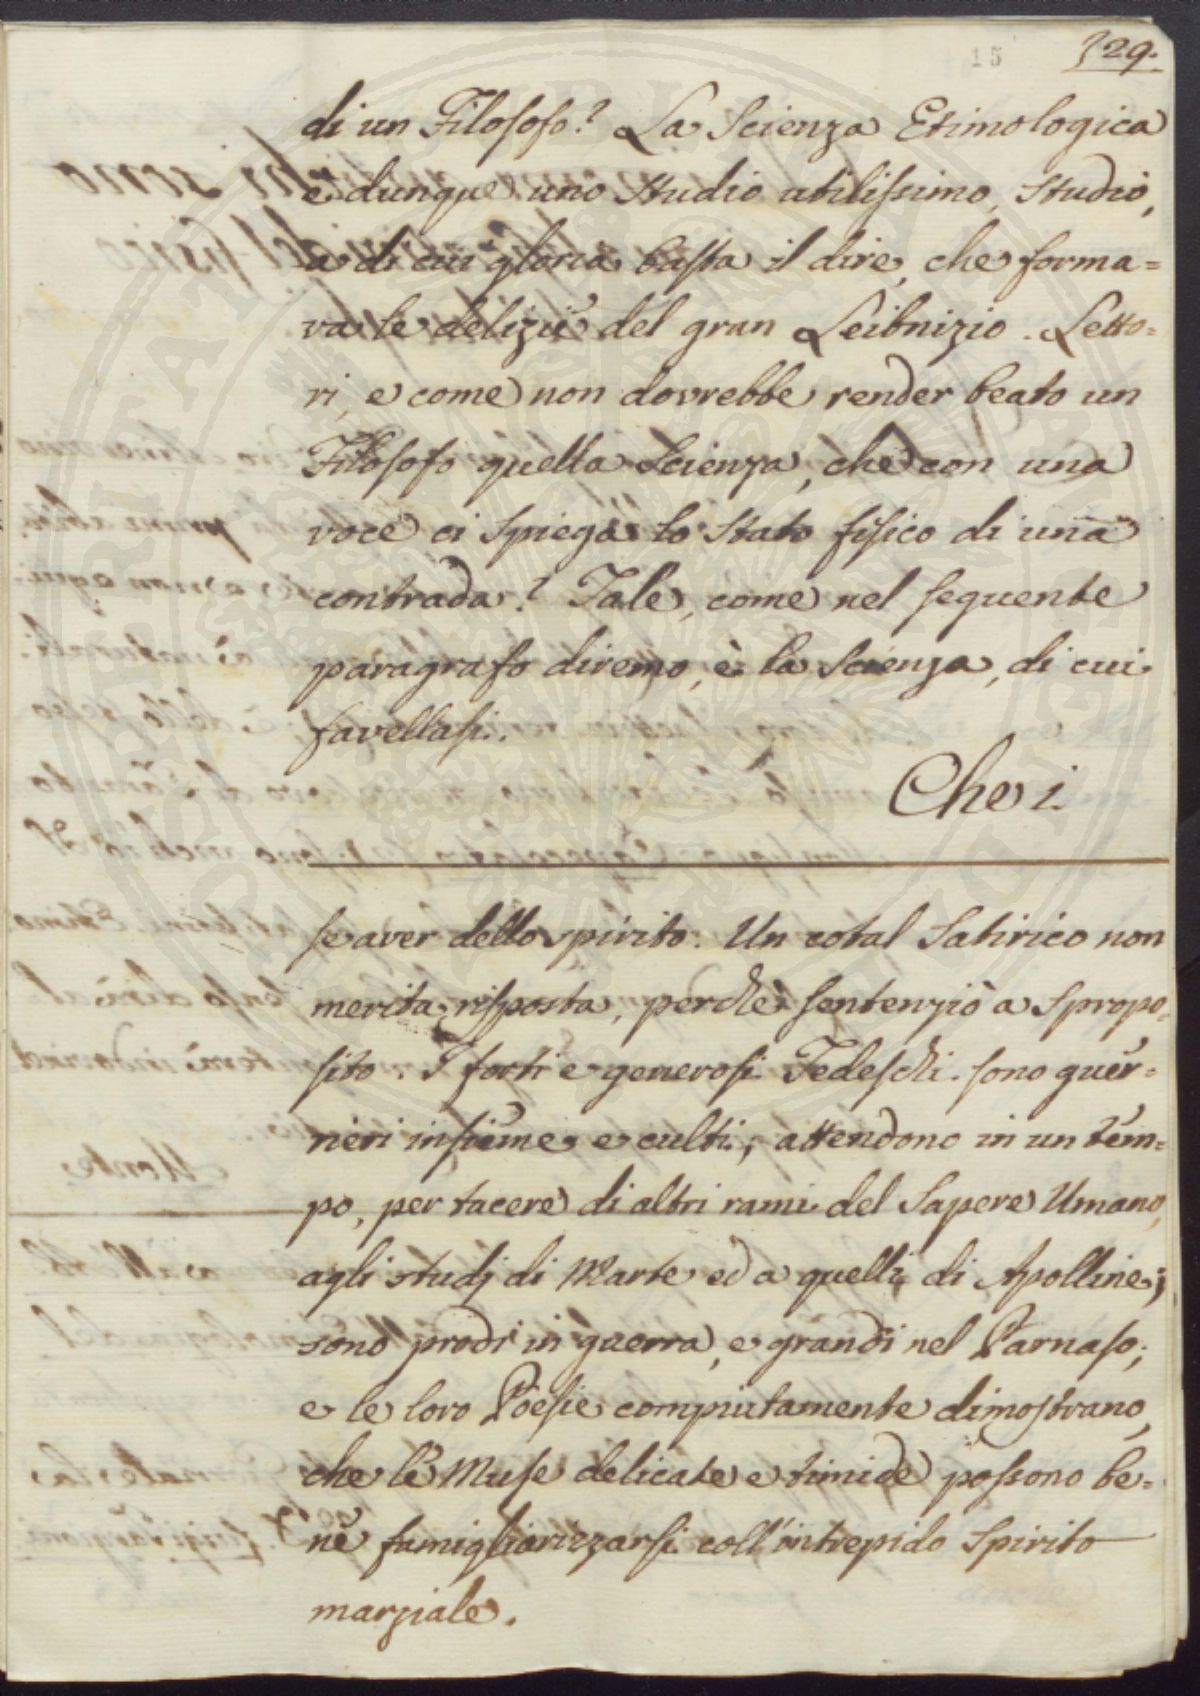 15
329.
di un Filosofo? La Scienza Etimologica
è dunque uno studio utilissimo, studio,
a di cui gloria basta il dire, che forma=
va le delizie del gran Leibnizio. Letto=
ri, e come non dovrebbe render beato un
Filosofo quella Scienza, che con una
voce ci spiega lo stato fisico di una
contrada? Tale, come nel seguente
paragrafo diremo, è la Scienza, di cui
favellasi.
Che i
se aver dello spirito. Un cotal Satirico non
merita risposta, perchè sentenziò a spropo=
sito. I forti e generosi Tedeschi sono guer=
rieri insieme e culti; attendono in un tem=
po, per tacere di altri rami del Sapere Umano,
agli studj di Marte ed a quelli di Apolline;
sono prodi in guerra, e grandi nel Parnaso;
e le loro Poesie compiutamente dimostrano,
che le Muse delicate e timide possono be=
ne famigliarizzarsi coll'intrepido spirito
marziale.